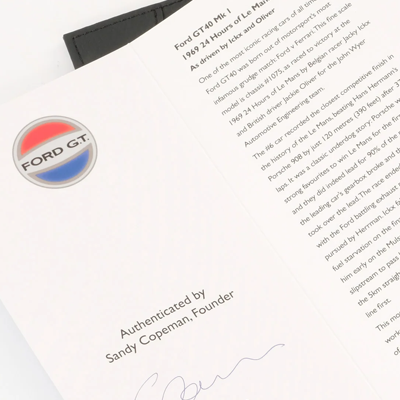 FORD G.T.
Authenticated by
Sandy Copeman, Founder
Ford GT40 Mk I
1969 24 Hours of Le Mans
As driven by Ickx and Oliver
One of the most iconic racing cars of all time
Ford GT40 was born out of motorsport's most
infamous grudge match: Ford v Ferrari. This fine scale
model is chassis #1075 as raced to victory at the
1969 24 Hours of Le Mans by Belgian racer Jacky Ickx
and British driver Jackie Oliver for the John Wyer
Automotive Engineering team.
The #6 car recorded the closest competitive finish in
the history of the Le Mans, beating Hans Hermann's
Porsche 908 by just 120 metres (390 feet) after 37
laps. It was a classic underdog story: Porsche w
strong favourites to win Le Mans for the firs
and they did indeed lead for 90% of the
the leading car's gearbox broke and th
took over the lead. The race ende
with the Ford battling exhaust
pursued by Herrman. Ickx f
fuel starvation on the fin
him early on the Muls
slipstream to pass
the 5km straigh
line first.
This mo
work
of